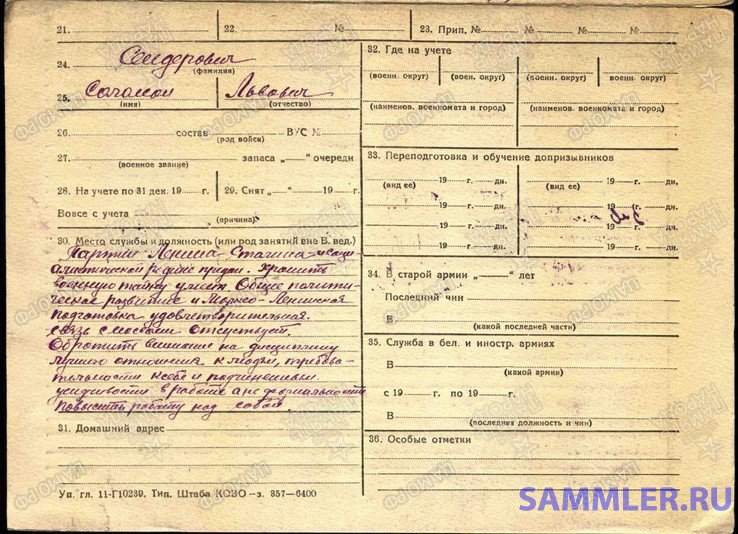 21. 22. № 23. Прип. № № №
24. Сендерович
(фамилия)
25. Соломон Львович
(имя) (отчество)
26. состав ВУС №
(род войск)
27. запаса „ “ очереди
(военное звание)
28. На учете по 31 дек. 19 г. 29. Снят „ “ 19 г.
Вовсе с учета
(причина)
30. Место службы и должность (или род занятий вне В. вед.)
Партии Ленина-Сталина и соци-
алистической родине предан. Хранить
военную тайну умеет. Общее полити-
ческое развитие и Марксо-Ленинская
подготовка удовлетворительная.
Связь с массами отсутствует.
Обратить внимание на дисциплину
лучшего отношения к людям, требова-
тельности к себе и подчиненным
усидчивости в работе а не формальности
повысить работу над собой.
31. Домашний адрес
Уп. гл. 11-Г10239. Тип. Штаба КОВО -з. 357—6400
32. Где на учете
(военн. округ) (воен. округ) (военн. округ) военн. округ)
(наименов. военкомата и город) (наименов. военкомата и город)
33. Переподготовка и обучение допризывников
19 г. дн. 19 г. дн.
(вид ее) (вид ее)
19 г. дн. 19 г. дн.
19 г. дн. 19 г. дн.
19 г. дн. 19 г. дн.
34. В старой армии „ “ лет
Последний чин
В
(какой последней части)
35. Служба в бел. и иностр. армиях
В
(какой армии)
с 19 г. по 19 г.
В
(последняя должность и чин)
36. Особые отметки
SAMMLER.RU